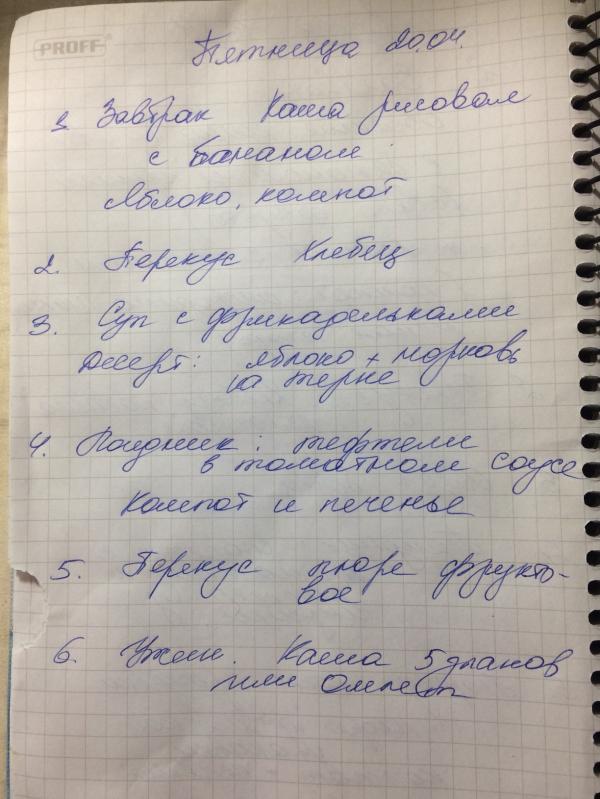 PROFF
Пятница 20.04.
1. Завтрак Каша рисовая
с бананом
Яблоко, компот
2. Перекус Хлебец
3. Суп с фрикадельками
Десерт: яблоко + морковь
на терке
4. Полдник: тефтели
в томатном соусе
Компот и печенье
5. Перекус пюре фрукто-
вое
6. Ужин. Каша 5 злаков
или Омлет